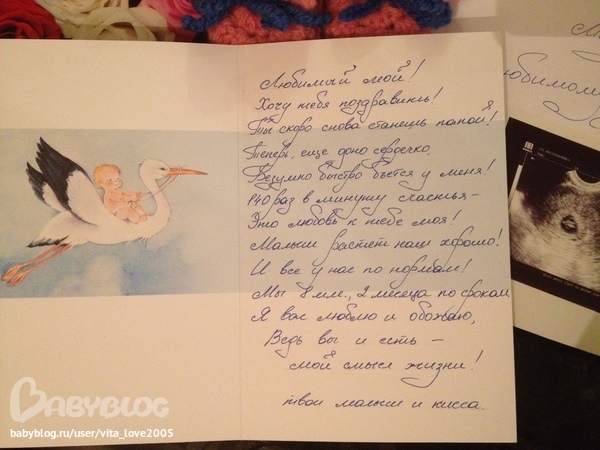 Любимый мой!
Хочу тебя поздравить!
Ты скоро снова станешь папой!
Теперь, еще одно сердечко,
Безумно быстро бьется у меня!
140 раз в минуту счастья -
Это любовь к тебе моя!
Малыш растет наш хорошо!
И все у нас по нормам!
Мы 8 мм., 2 месяца по срокам
Я вас люблю и обожаю,
Ведь вы и есть -
мой смысл жизни!
твои малыш и кисса.
BABYBLOG
babyblog.ru/user/vita_love2005